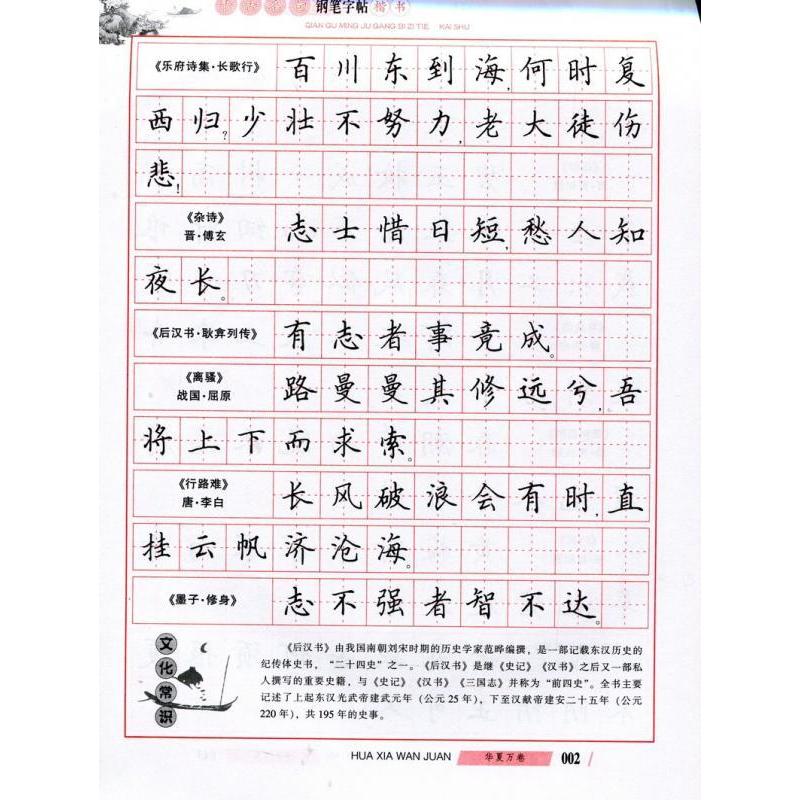 千古名句 钢笔字帖 楷书
QIAN GU MING JU GANG BI ZI TIE KAI SHU
《乐府诗集·长歌行》 百川东到海,何时复
西归?少壮不努力,老大徒伤
悲!
《杂诗》
晋·傅玄
志士惜日短,愁人知
夜长。
《后汉书·耿弇列传》 有志者事竟成。
《离骚》
战国·屈原
路曼曼其修远兮,吾
将上下而求索。
《行路难》
唐·李白
长风破浪会有时,直
挂云帆济沧海。
《墨子·修身》 志不强者智不达。
文化常识
《后汉书》由我国南朝刘宋时期的历史学家范晔编撰,是一部记载东汉历史的
纪传体史书,“二十四史”之一。《后汉书》是继《史记》《汉书》之后又一部私
人撰写的重要史籍,与《史记》《汉书》《三国志》并称为“前四史”。全书主要
记述了上起东汉光武帝建武元年(公元25年),下至汉献帝建安二十五年(公元
220年),共195年的史事。
HUA XIA WAN JUAN 华夏万卷 002